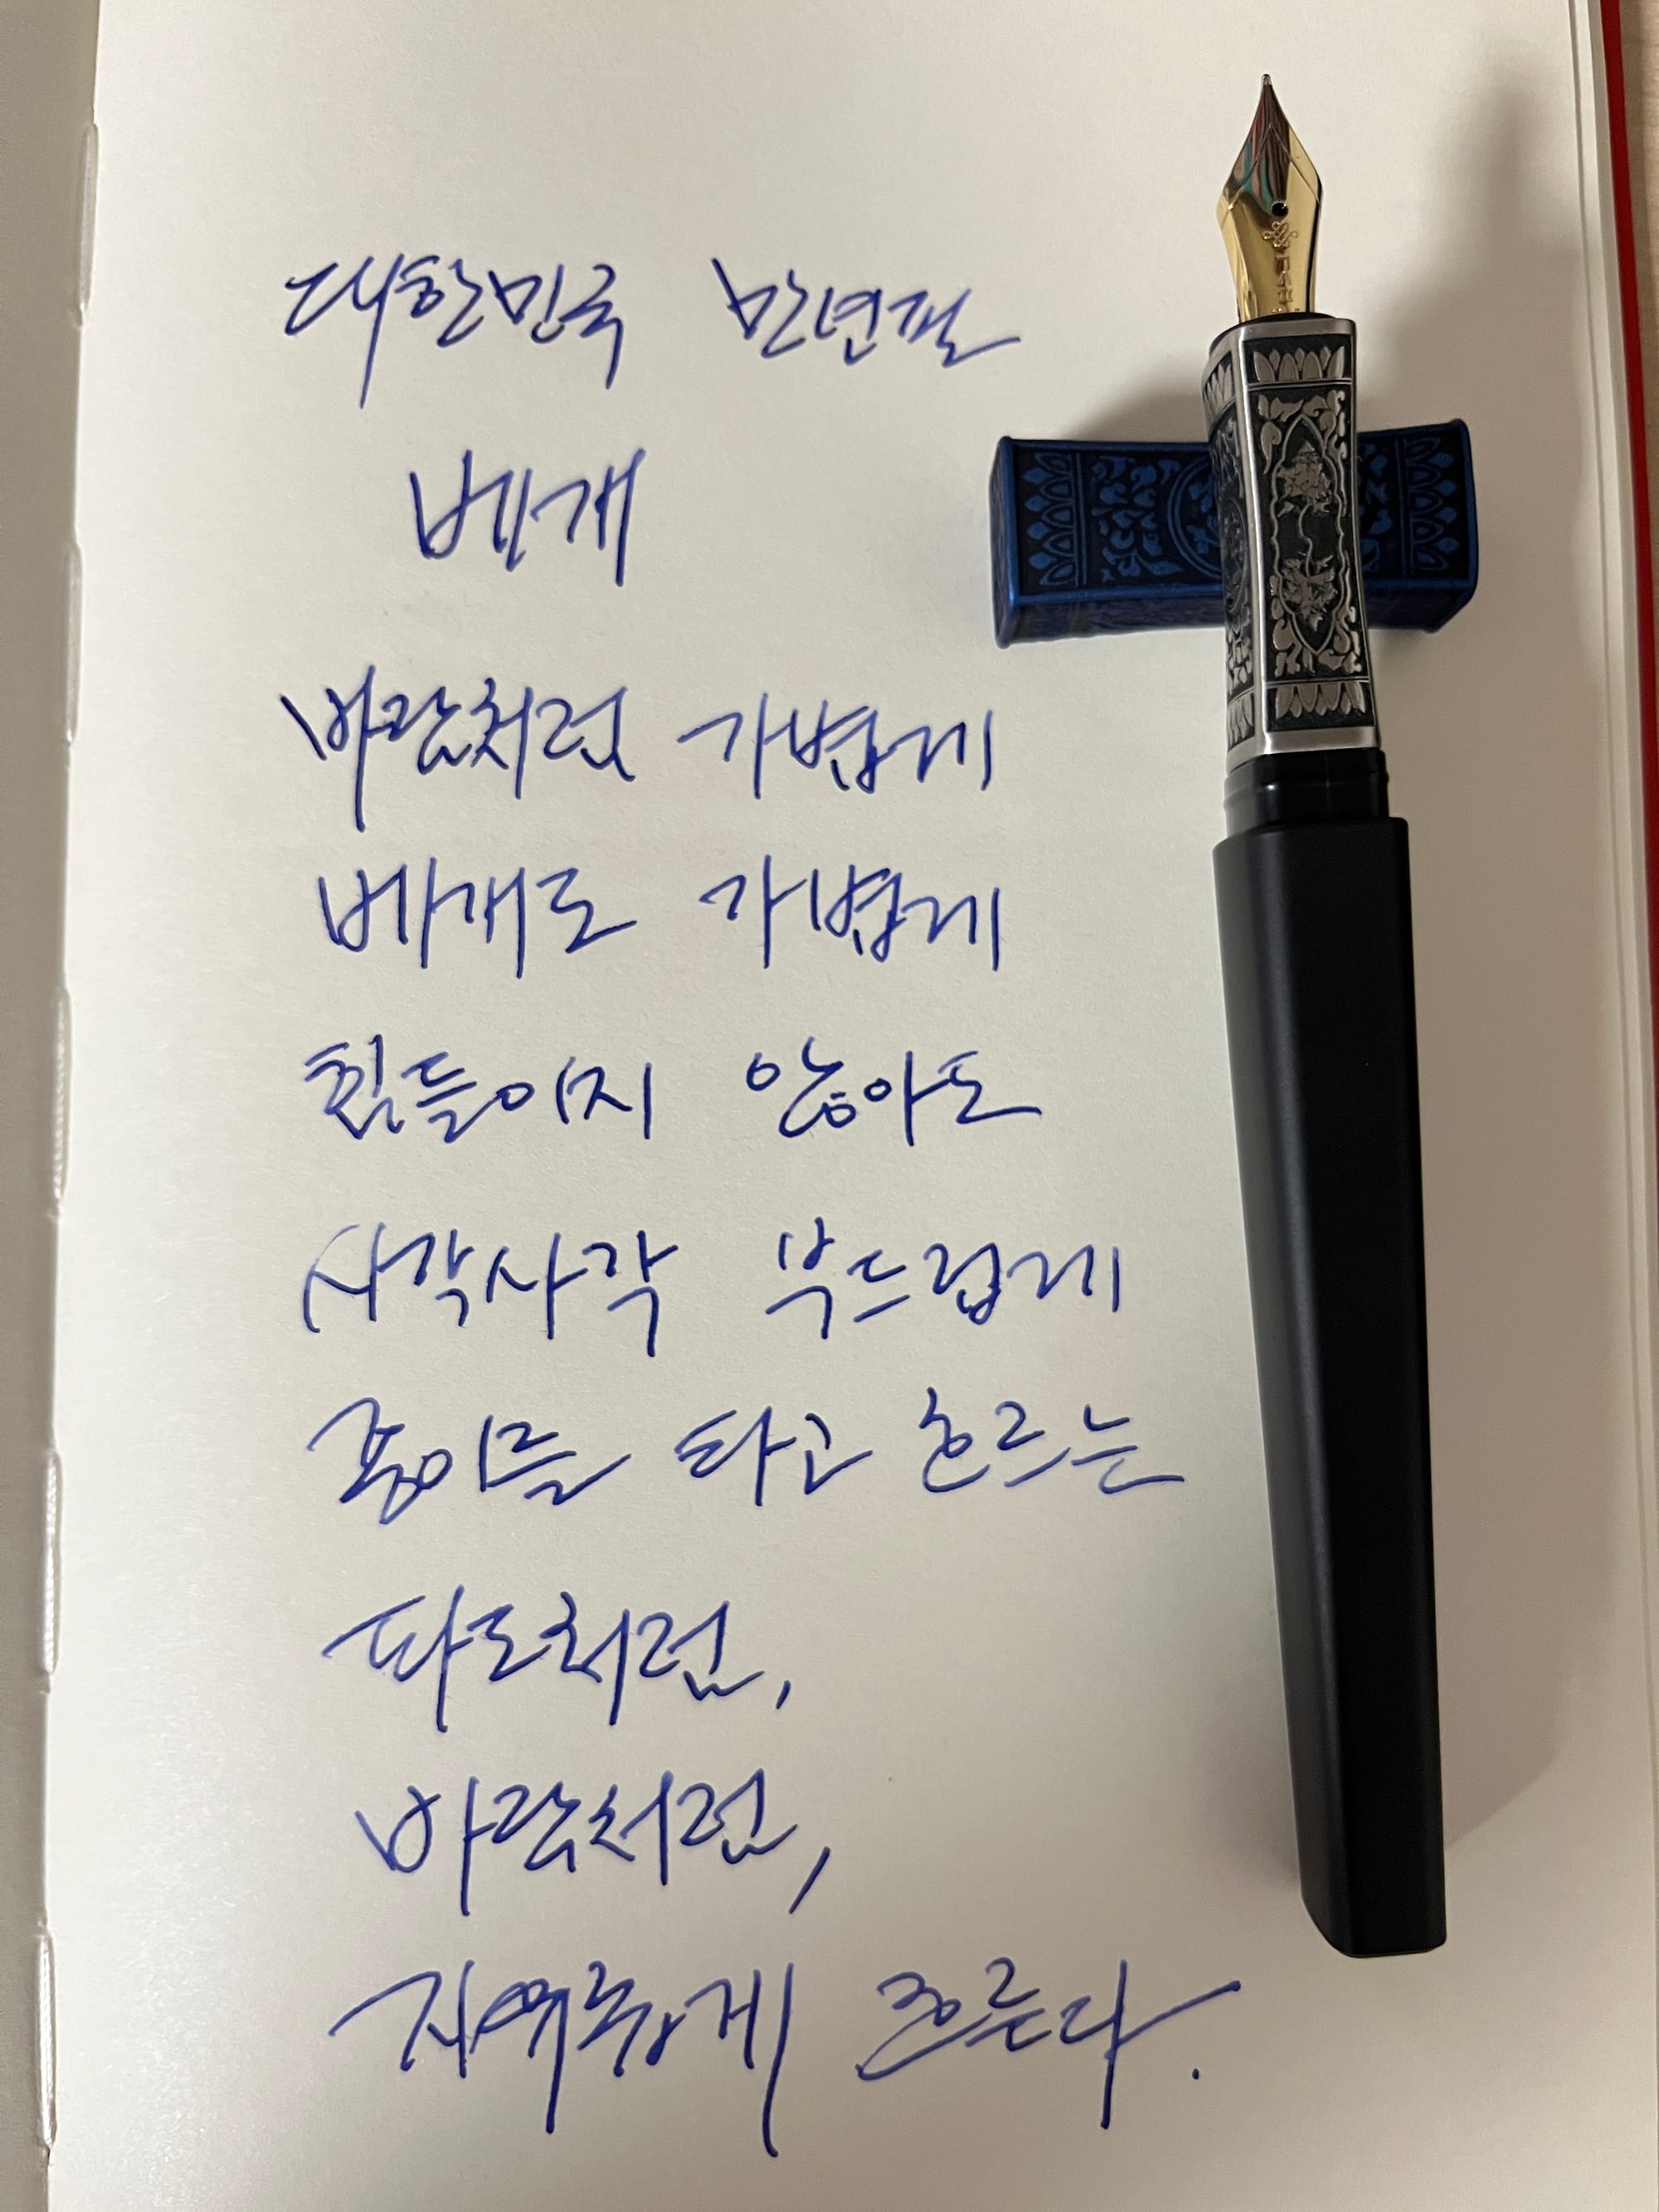 대한민국 만년필
베개
바람처럼 가볍게
베개도 가볍게
힘들이지 않아도
사각사각 부드럽게
종이를 타고 흐르는
파도처럼,
바람처럼,
자유롭게 흐른다.